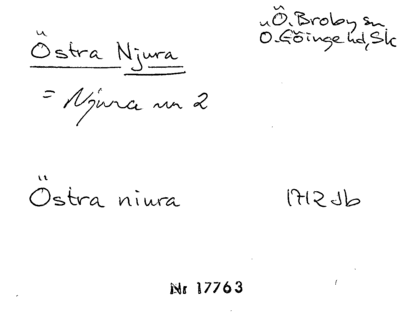 Ö. Broby sn
Ö. Göinge hd, Sk
Östra Njura
= Njura nr 2
Östra niura 1712 Jb
Nr 17763